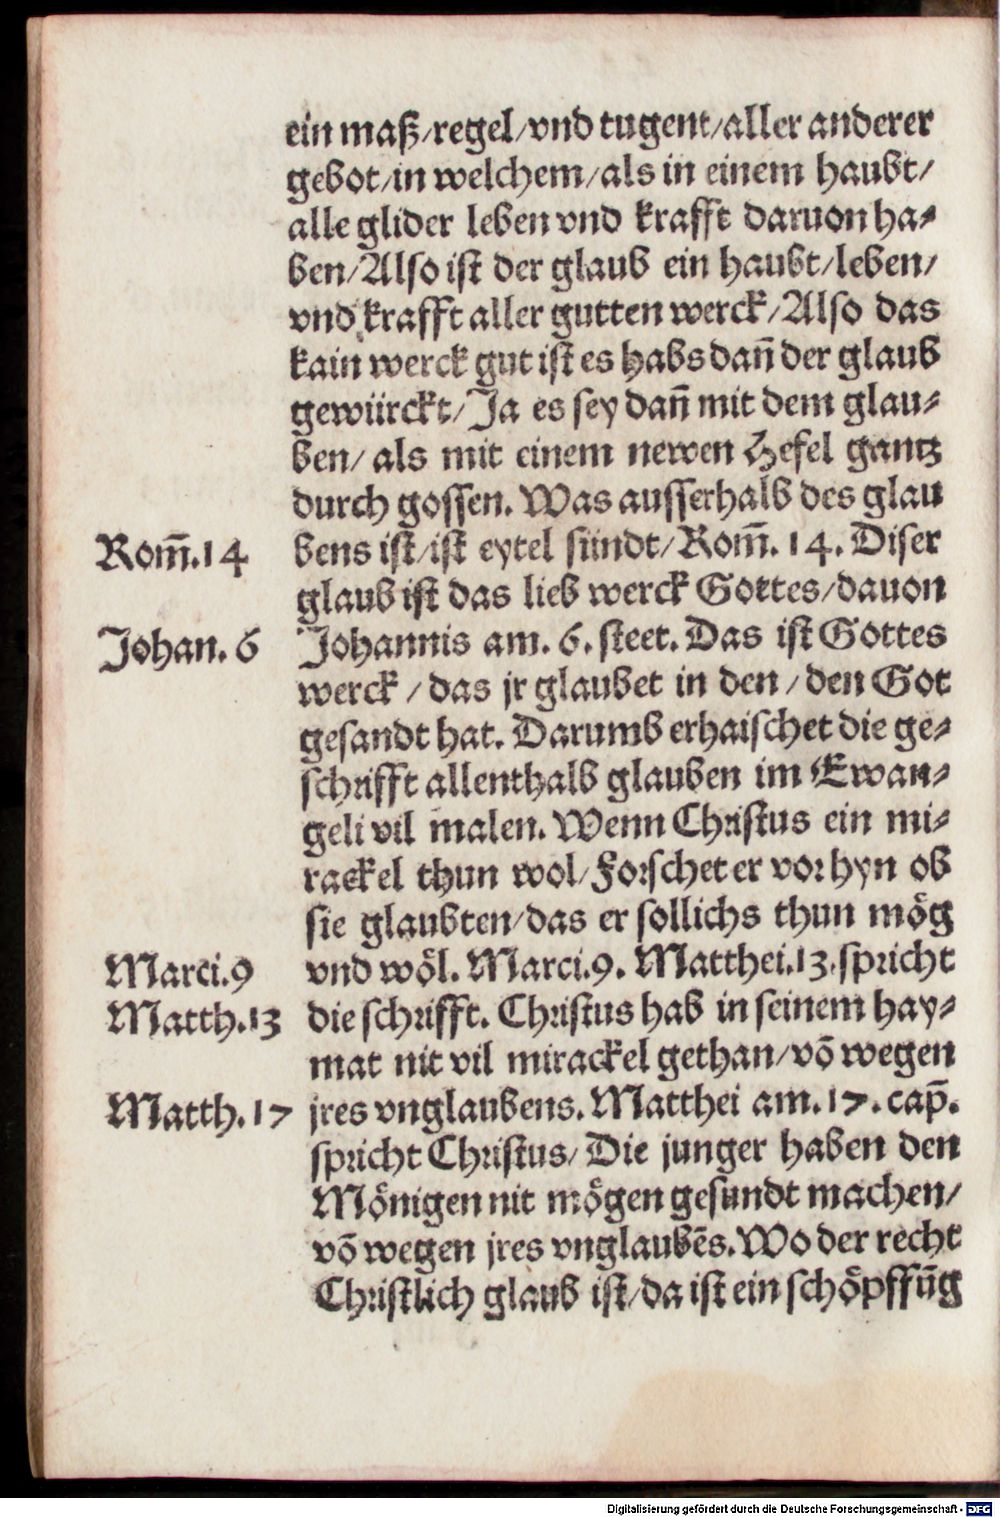 ein maß/regel/vnd tugent/aller anderer
gebot/in welchem/als in einem haubt/
alle glider leben vnd krafft daruon ha⸗
ben/Also ist der glaub ein haubt/leben/
vnd krafft aller gutten werck/Also das
kain werck gut ist es habs dañ der glaub
gewürckt/Ja es sey dañ mit dem glau⸗
ben/als mit einem newen Hefel gantz
durch gossen. Was ausserhalb des glau
Rom̃.14 bens ist/ist eytel sündt/Rom̃. 14. Diser
glaub ist das lieb werck Gottes/dauon
Johan. 6 Johannis am. 6. steet. Das ist Gottes
werck/das jr glaubet in den/den Got
gesandt hat. Darumb erhaischet die ge⸗
schrifft allenthalb glauben im Ewan⸗
geli vil malen. Wenn Christus ein mi⸗
rackel thun wol/Forschet er vor hyn ob
sie glaubten/das er sollichs thun mög
Marci.9 vnd wöl. Marci.9. Matthei.13.spricht
Matth.13 die schrifft. Christus hab in seinem hay⸗
mat nit vil mirackel gethan/võ wegen
Matth.17 jres vnglaubens. Matthei am.17.cap̃.
spricht Christus/Die junger haben den
Mönigen nit mögen gesundt machen/
võ wegen jres vnglaubẽs. Wo der recht
Christlich glaub ist/da ist ein schöpffũg
Digitalisierung gefördert durch die Deutsche Forschungsgemeinschaft - DFG